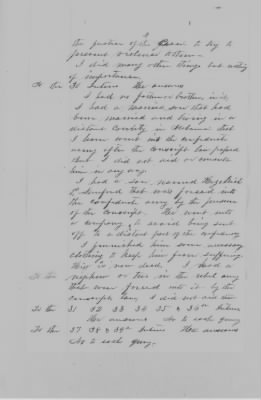 4
the justice of the Cause to try to
prevent violence & them
I did many other things but nothing
of importance
To the 30 Inter She answers
I had no fortune brothers in it,
I had a married son that had
been married and living in a
distant County, in Alabama that
I have went into the confederate
army after the conscript law passed
But I did not aid or consult
him in any way
I had a son named Hezekiah
L that was forced into
the confederate army by the pressure
of the conscript. He went into
a company to avoid being sent
off to a distant part of the confederacy
I furnished him some necessary
clothing to keep him from suffering
He is now dead. I had a
nephew or two in the rebel army
that were forced into it by the
conscript law, I did not aid them
To the 31 32 33 34 35 & 36th Inters
Her answers No to each query
To the 37 38 & 39th Inters Her answers
No to each query.